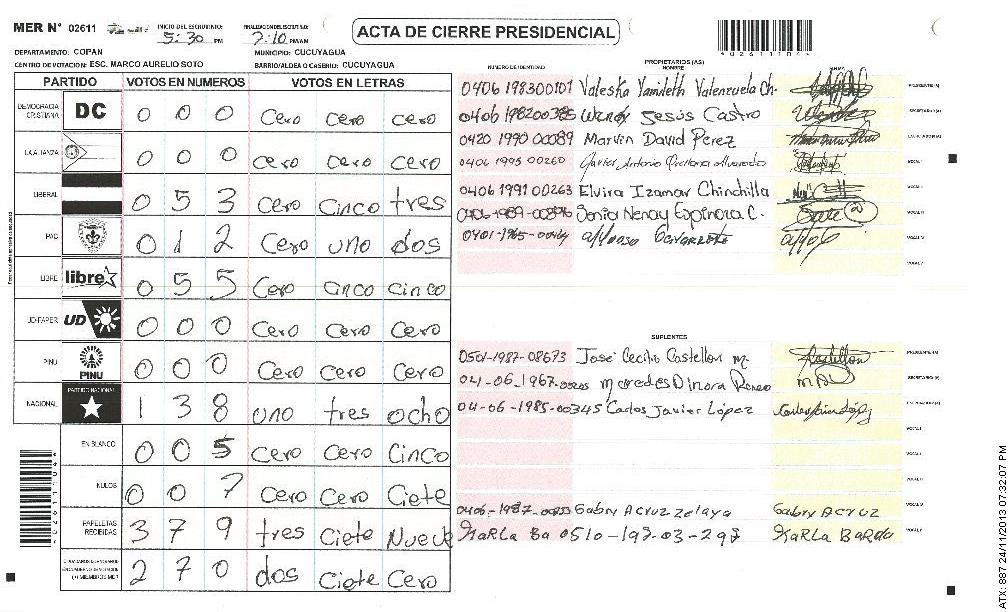 MER N° 02611
INICIO DEL ESCRUTINIO 5:30 PM
FINALIZACION DEL ESCRUTINIO 7:10 PM/AM
ACTA DE CIERRE PRESIDENCIAL
02611104
DEPARTAMENTO: COPAN MUNICIPIO: CUCUYAGUA
CENTRO DE VOTACION: ESC. MARCO AURELIO SOTO BARRIO/ALDEA O CASERIO: CUCUYAGUA
PARTIDO VOTOS EN NUMEROS VOTOS EN LETRAS
DEMOCRACIA CRISTIANA DC 0 0 0 Cero Cero Cero
LA ALIANZA 0 0 0 Cero Cero Cero
LIBERAL 0 5 3 Cero Cinco tres
PAC 0 1 2 Cero uno dos
LIBRE libre 0 5 5 Cero Cinco Cinco
UD-FAPER UD 0 0 0 Cero Cero Cero
PINU PINU 0 0 0 Cero Cero Cero
NACIONAL PARTIDO NACIONAL 1 3 8 uno tres ocho
EN BLANCO 0 0 5 Cero Cero Cinco
NULOS 0 0 7 Cero Cero Ciete
PAPELETAS RECIBIDAS 3 7 9 tres Ciete Nueve
2 7 0 dos Ciete Cero
PROPIETARIOS (AS)
NUMERO DE IDENTIDAD NOMBRE FIRMA
0406 198300101 Valeska Yamileth Valenzuela Ch. PRESIDENTE (A)
0406 198200385 Wendy Jesús Castro SECRETARIO (A)
0420 1990 00089 Marvin David Perez ESCRUTADOR (A)
0406 1995 00260 Javier Antonio Orellana Alvarado VOCAL I
0406 1991 00263 Elvira Izamar Chinchilla VOCAL II
0406-1989-00896 Sonia Nenay Espinoza C. VOCAL III
0401-1965-00464 VOCAL IV
VOCAL V
SUPLENTES
0501-1987-08673 José Cecilio Castellon M. Castellon PRESIDENTE (A)
04-06-1967- Mercedes Dinora SECRETARIO (A)
04-06-1985-00345 Carlos Javier López Carlos Javier López ESCRUTADOR (A)
VOCAL I
VOCAL II
VOCAL III
0406-1987- Gabry A Cruz Zelaya Gabry A Cruz VOCAL IV
Karla Ba 0510-197-03-297 Karla Barda VOCAL V
02611104
ATX: 887 24/11/2013 07:32:07 PM